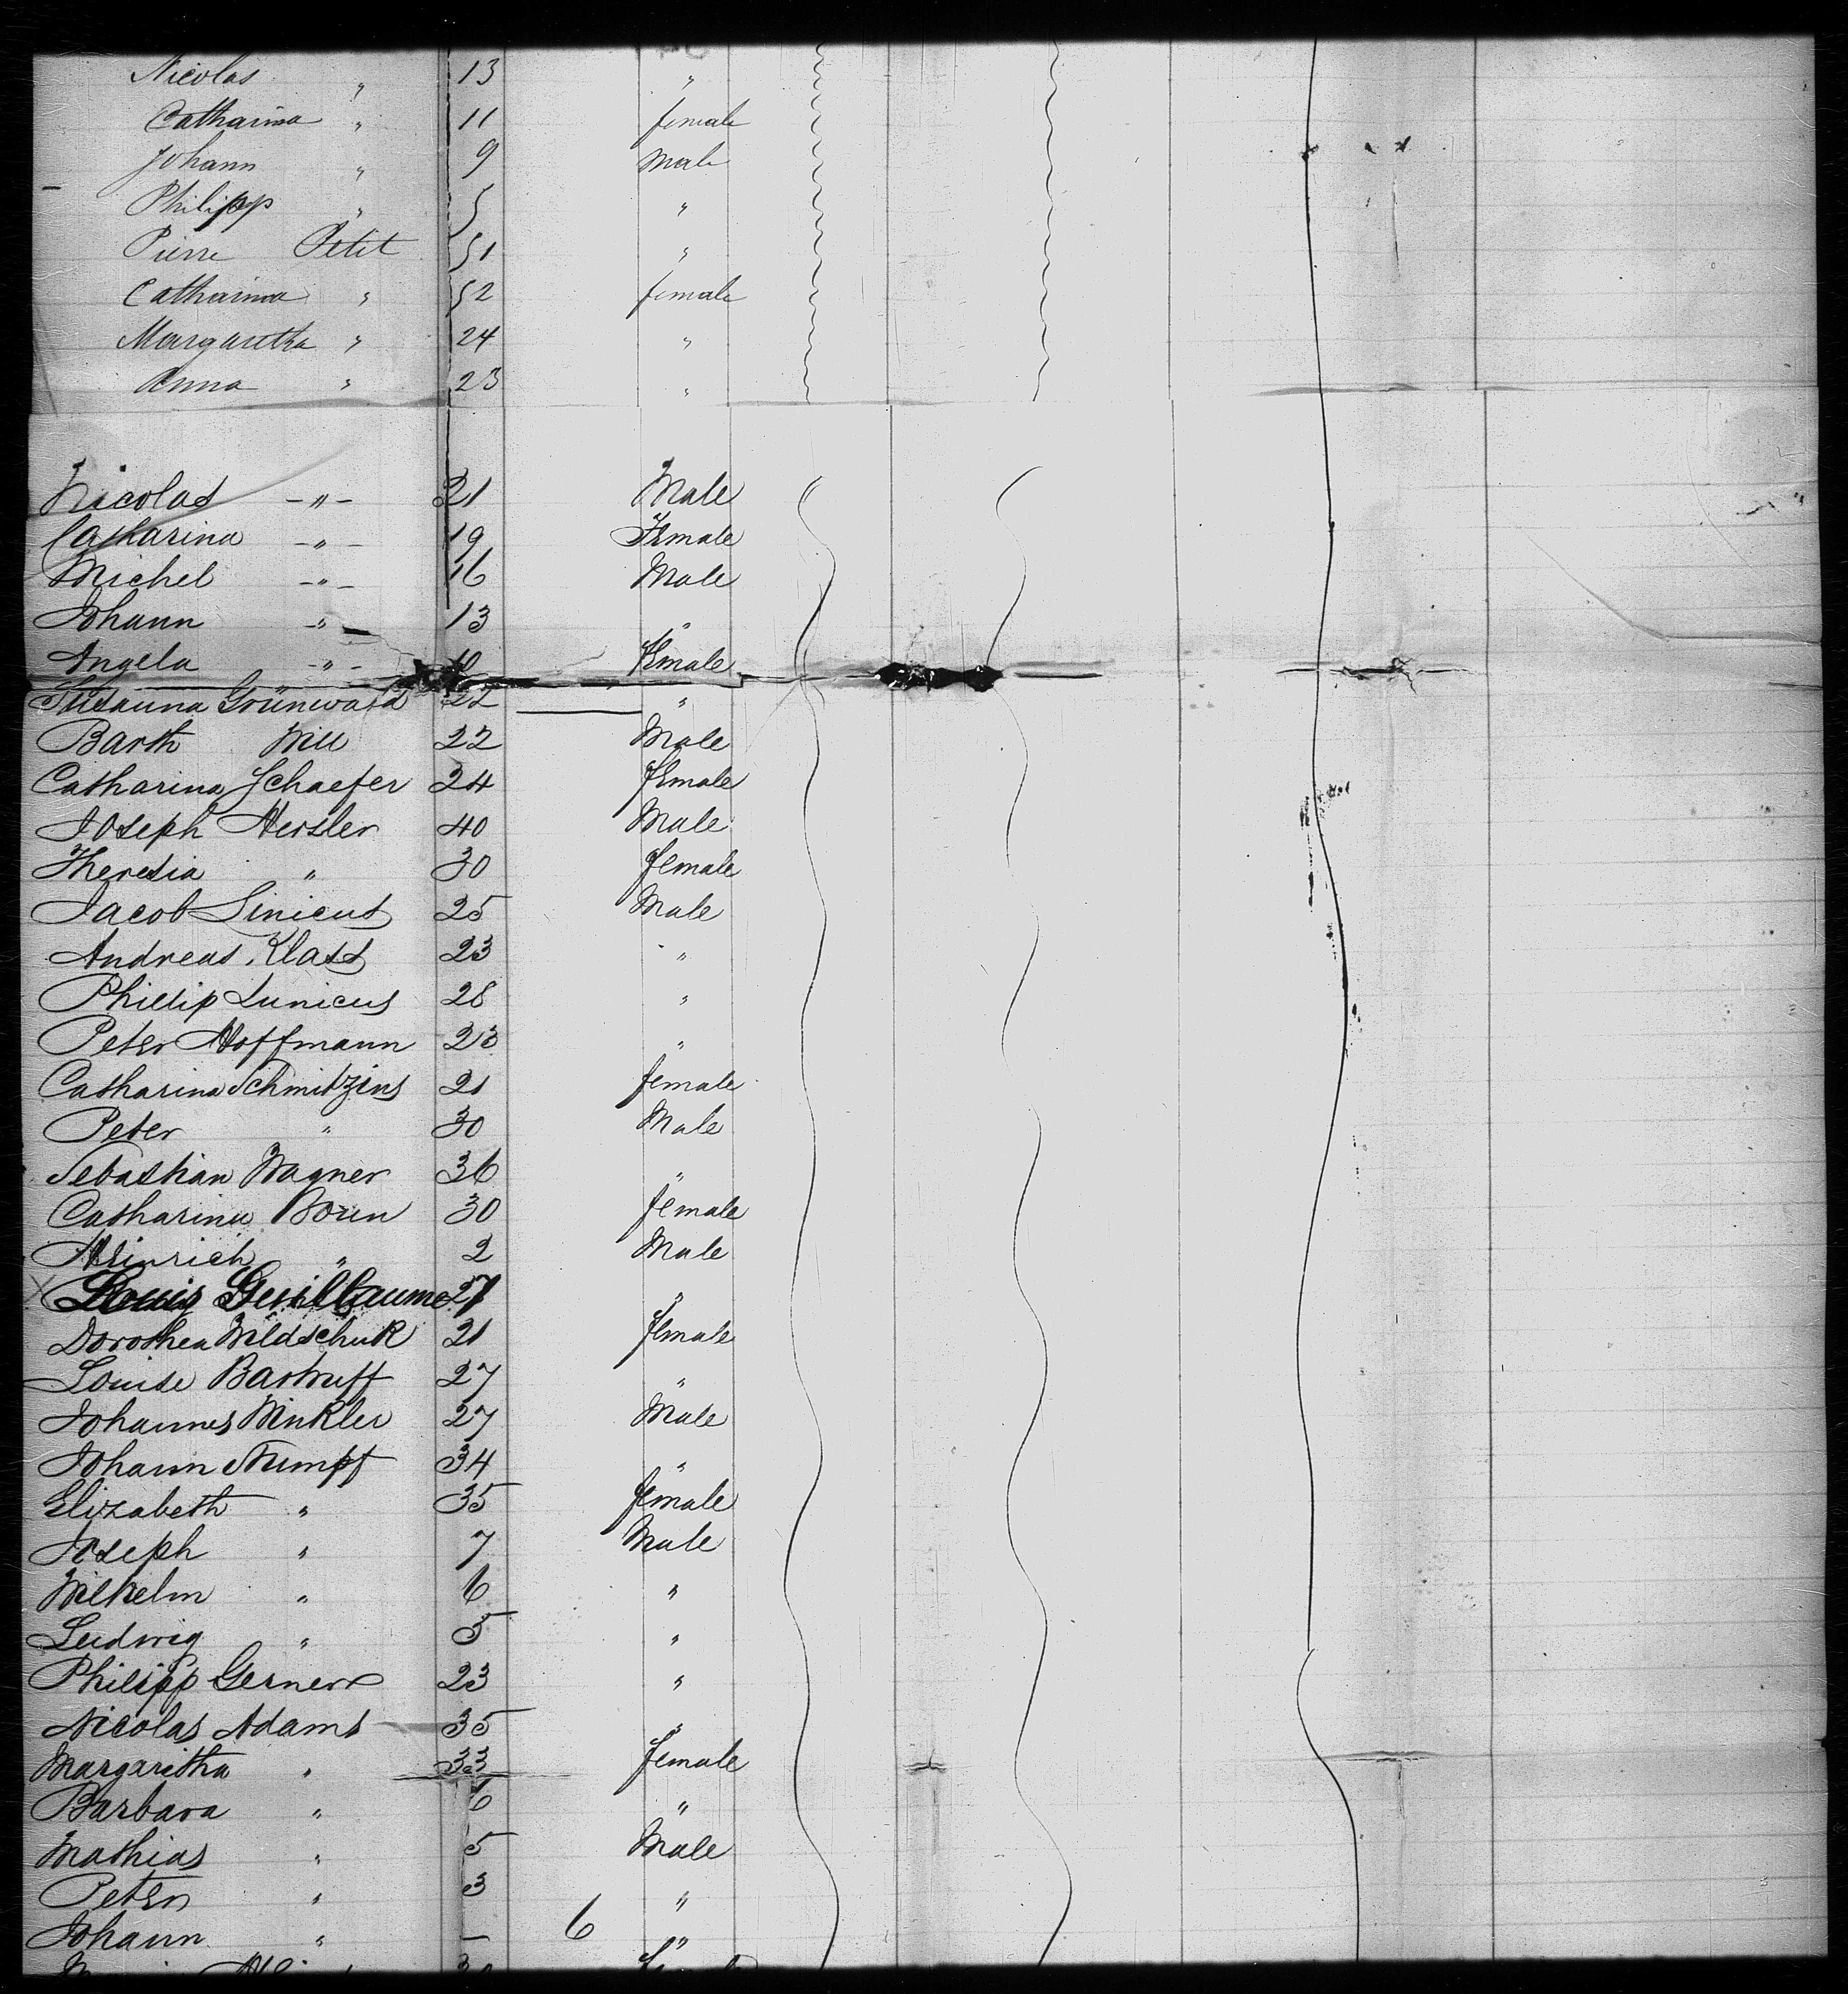 Nicolas " 13 "
Catharina " 11 female
Johann " 9 male
Philipp " 5 "
Pierre Petit 51 "
Catharina " 52 female
Margaretha " 24 "
Anna " 23 "
Nicolas -"- 21 Male
Catharina -"- 19 Female
Michel -"- 16 Male
Johann -"- 13 "
Angela -"- 10 Female
Susanna Grünwald 22 "
Barth Will 22 Male
Catharina Schaefer 24 female
Joseph Hersler 40 Male
Theresia " 30 female
Jacob Linicus 25 Male
Andreas Klass 23 "
Phillip Lunicus 28 "
Peter Hoffmann 23 "
Catharina Schmitzins 21 female
Peter " 30 Male
Sebastian Wagner 36 "
Catharina Born 30 female
Heinrich " 2 Male
Louis Guillaume 27 "
Dorothea Wildschuk 21 female
Louise Bartruff 27 "
Johannes Winkler 27 Male
Johann Stumpf 34 "
Elizabeth " 35 female
Joseph " 7 Male
Wilhelm " 6 "
Ludwig " 5 "
Philipp Gerner 23 "
Nicolas Adams 35 "
Margaritha " 33 female
Barbara " 6 "
Mathias " 5 Male
Peter " 3 "
Johann " — 6 "